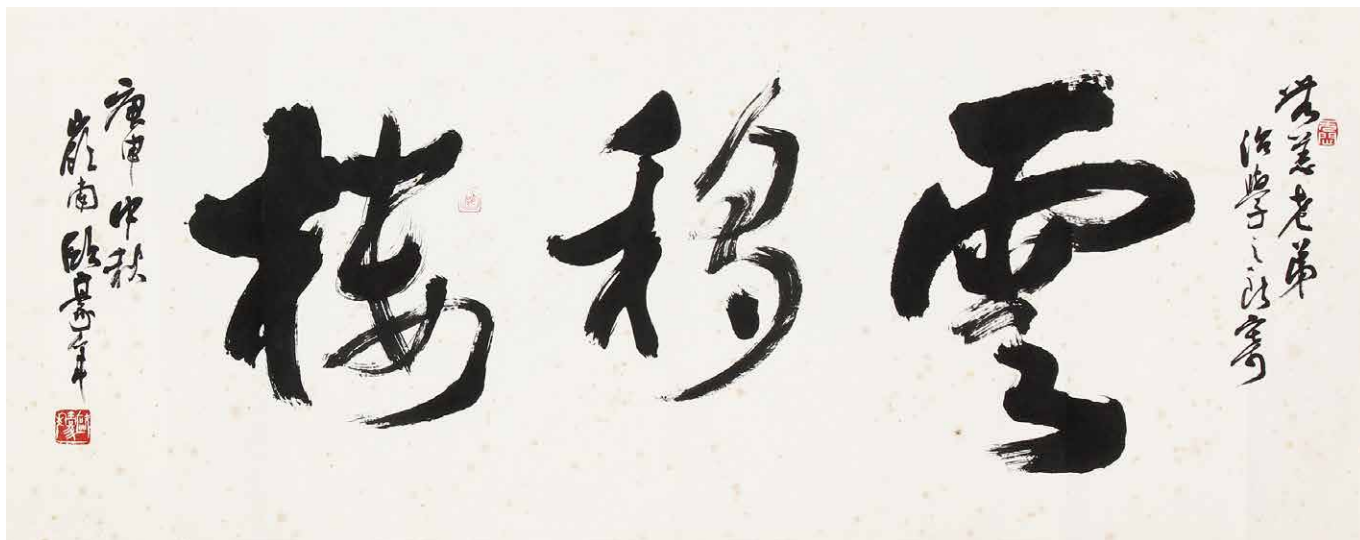 老弟
治學之所寄
雲移樓
庚申中秋
嶺南歐豪年